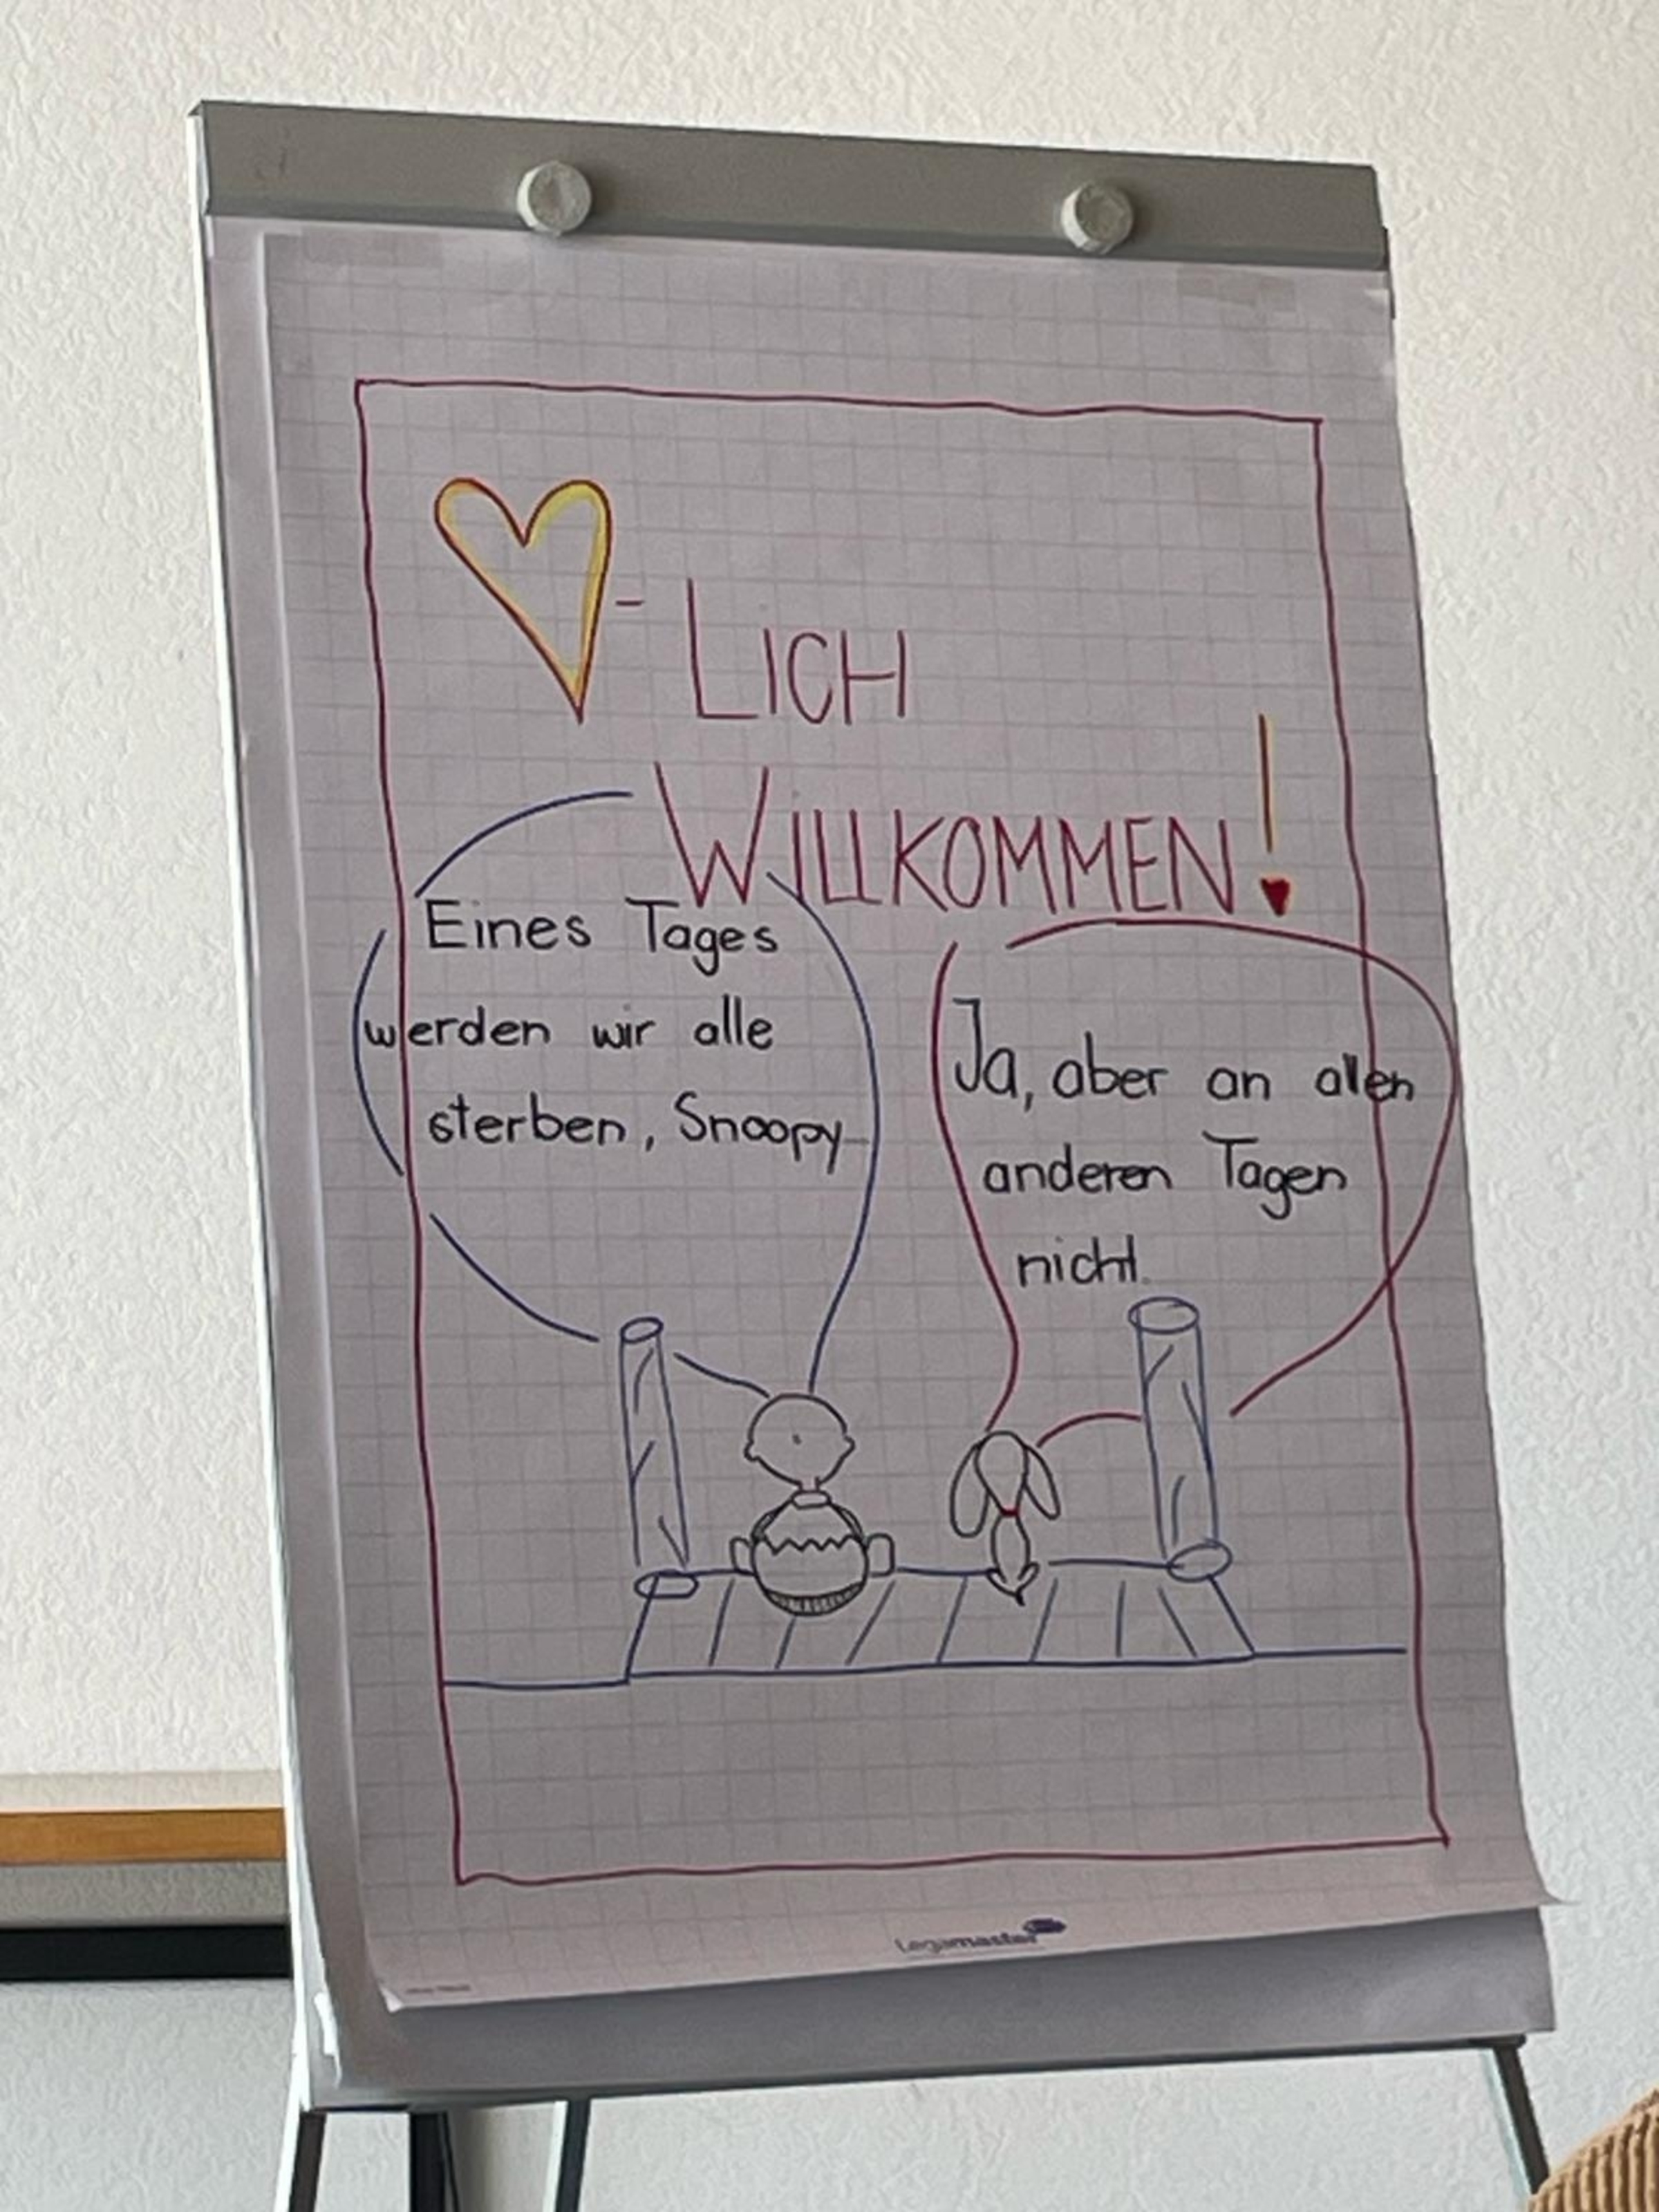 - LICH
WILLKOMMEN!
Eines Tages
werden wir alle
sterben, Snoopy
Ja, aber an allen
anderen Tagen
nicht.
Legamaster